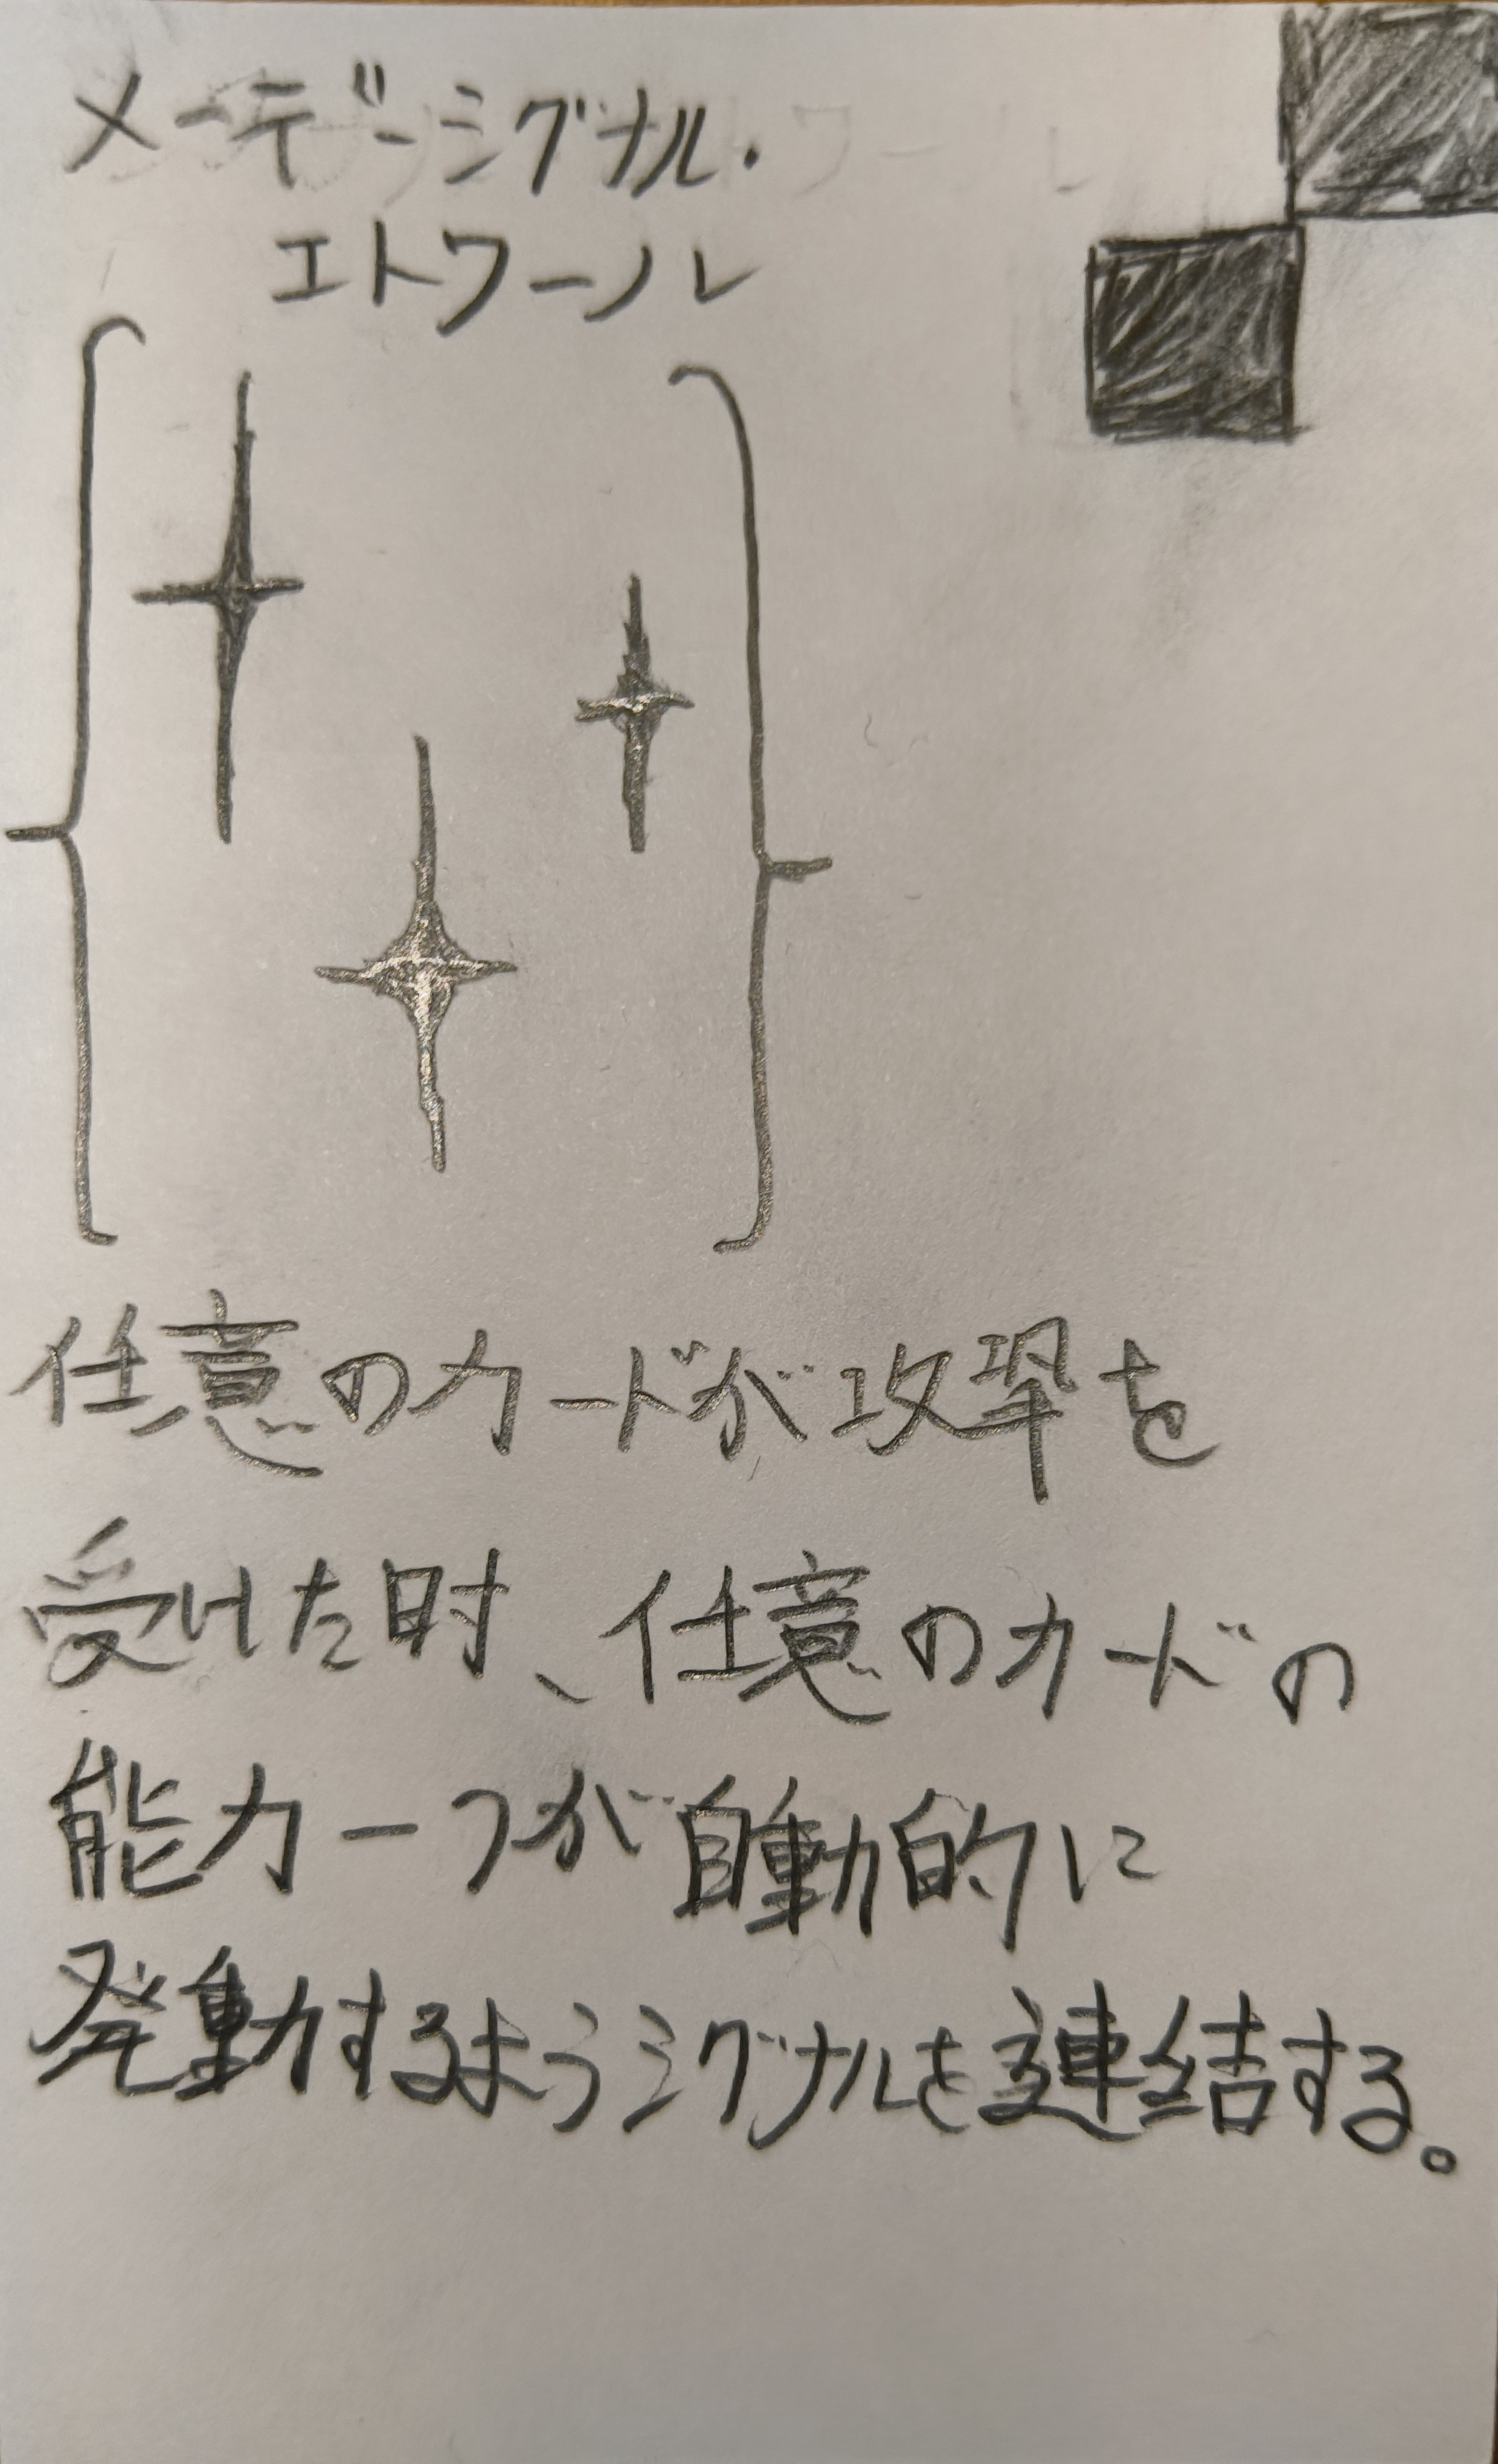 メーデーシグナル・
エトワール
任意のカードが攻撃を
受けた時、任意のカードの
能力一つが自動的に
発動するようシグナルを連結する。